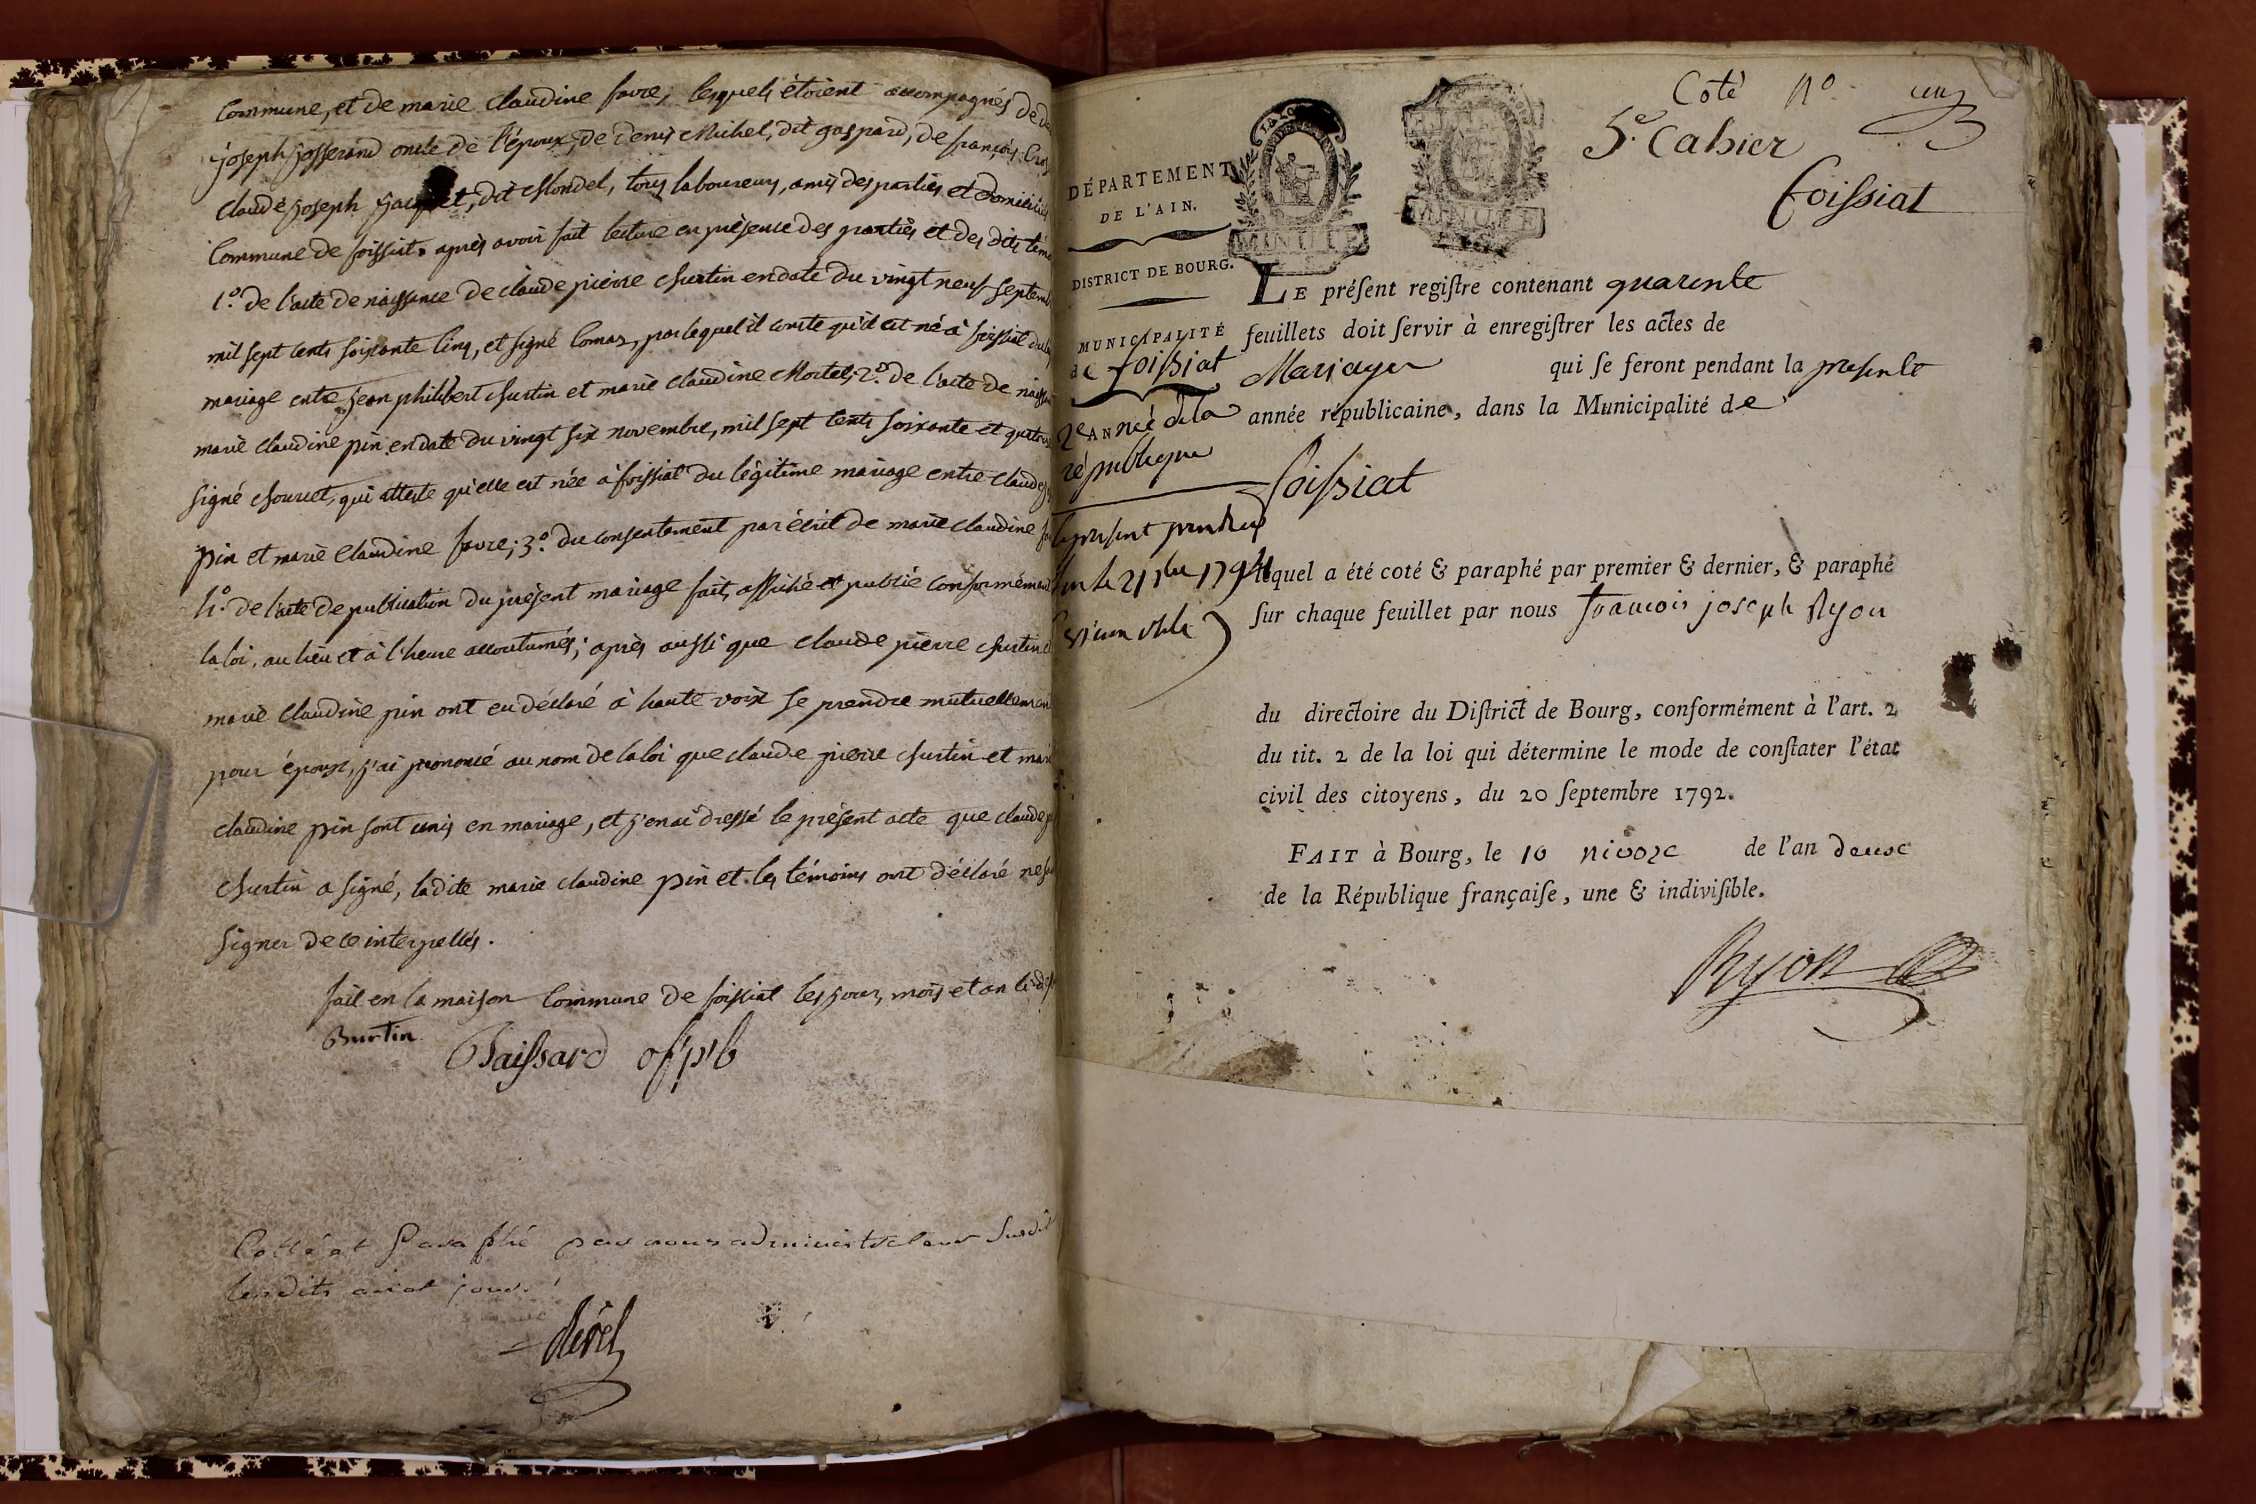 Commune, et de marie claudine favre; lesquels étoient accompagnés de
joseph josserand oncle de l'époux, de denis Michel, dit gaspard, de françois
claude joseph jacquet, dit Mondel, tous laboureurs, amis des parties et domiciliés
Commune de foissiat. après avoir fait lecture en présence des parties et des dits
1º. de l'acte de naissance de claude pierre Burtin en date du vingt neuf
mil sept cents soixante cinq, et signé Comas, par lequel il conste qu'il est né à foissiat
mariage entre jean philibert Burtin et marie claudine Mortel; 2º. de l'acte de
marie claudine pin en date du vingt six novembre, mil sept cents soixante et
signé qui atteste qu'elle est née à foissiat du légitime mariage entre claude
pin et marie claudine favre; 3º. du consentement par écrit de marie claudine
4º. de l'acte de publication du présent mariage fait, affiché et publié conformément
la loi, au lieu et à l'heure accoutumés; après aussi que claude pierre Burtin
marie claudine pin ont eu déclaré à haute voix se prendre mutuellement
pour époux, j'ai prononcé au nom de la loi que claude pierre Burtin et
claudine pin sont unis en mariage, et j'en ai dressé le présent acte que claude
Burtin a signé, ladite marie claudine pin et les témoins ont déclaré ne
signer de ce interpellés.
fait en la maison Commune de foissiat les jour, mois et an
Burtin
off pb
Cotté et Paraphé par nous administrateur
lesdits an et jour
Coté Nº. un
5e. Cahier
foissiat
DÉPARTEMENT
DE L'AIN.
DISTRICT DE BOURG.
MUNICIPALITÉ
de foissiat
2e ANnée de la
république
MINUTE
MINUTE
LE préſent regiſtre contenant quarente
feuillets doit ſervir à enregiſtrer les actes de
Mariages qui ſe feront pendant la presente
année républicaine, dans la Municipalité de
foissiat
lequel a été coté & paraphé par premier & dernier, & paraphé
ſur chaque feuillet par nous françois joseph Ryon
du directoire du Diſtrict de Bourg, conformément à l'art. 2
du tit. 2 de la loi qui détermine le mode de conſtater l'état
civil des citoyens, du 20 ſeptembre 1792.
FAIT à Bourg, le 10 nivose de l'an deuxe
de la République françaiſe, une & indiviſible.
Ryon